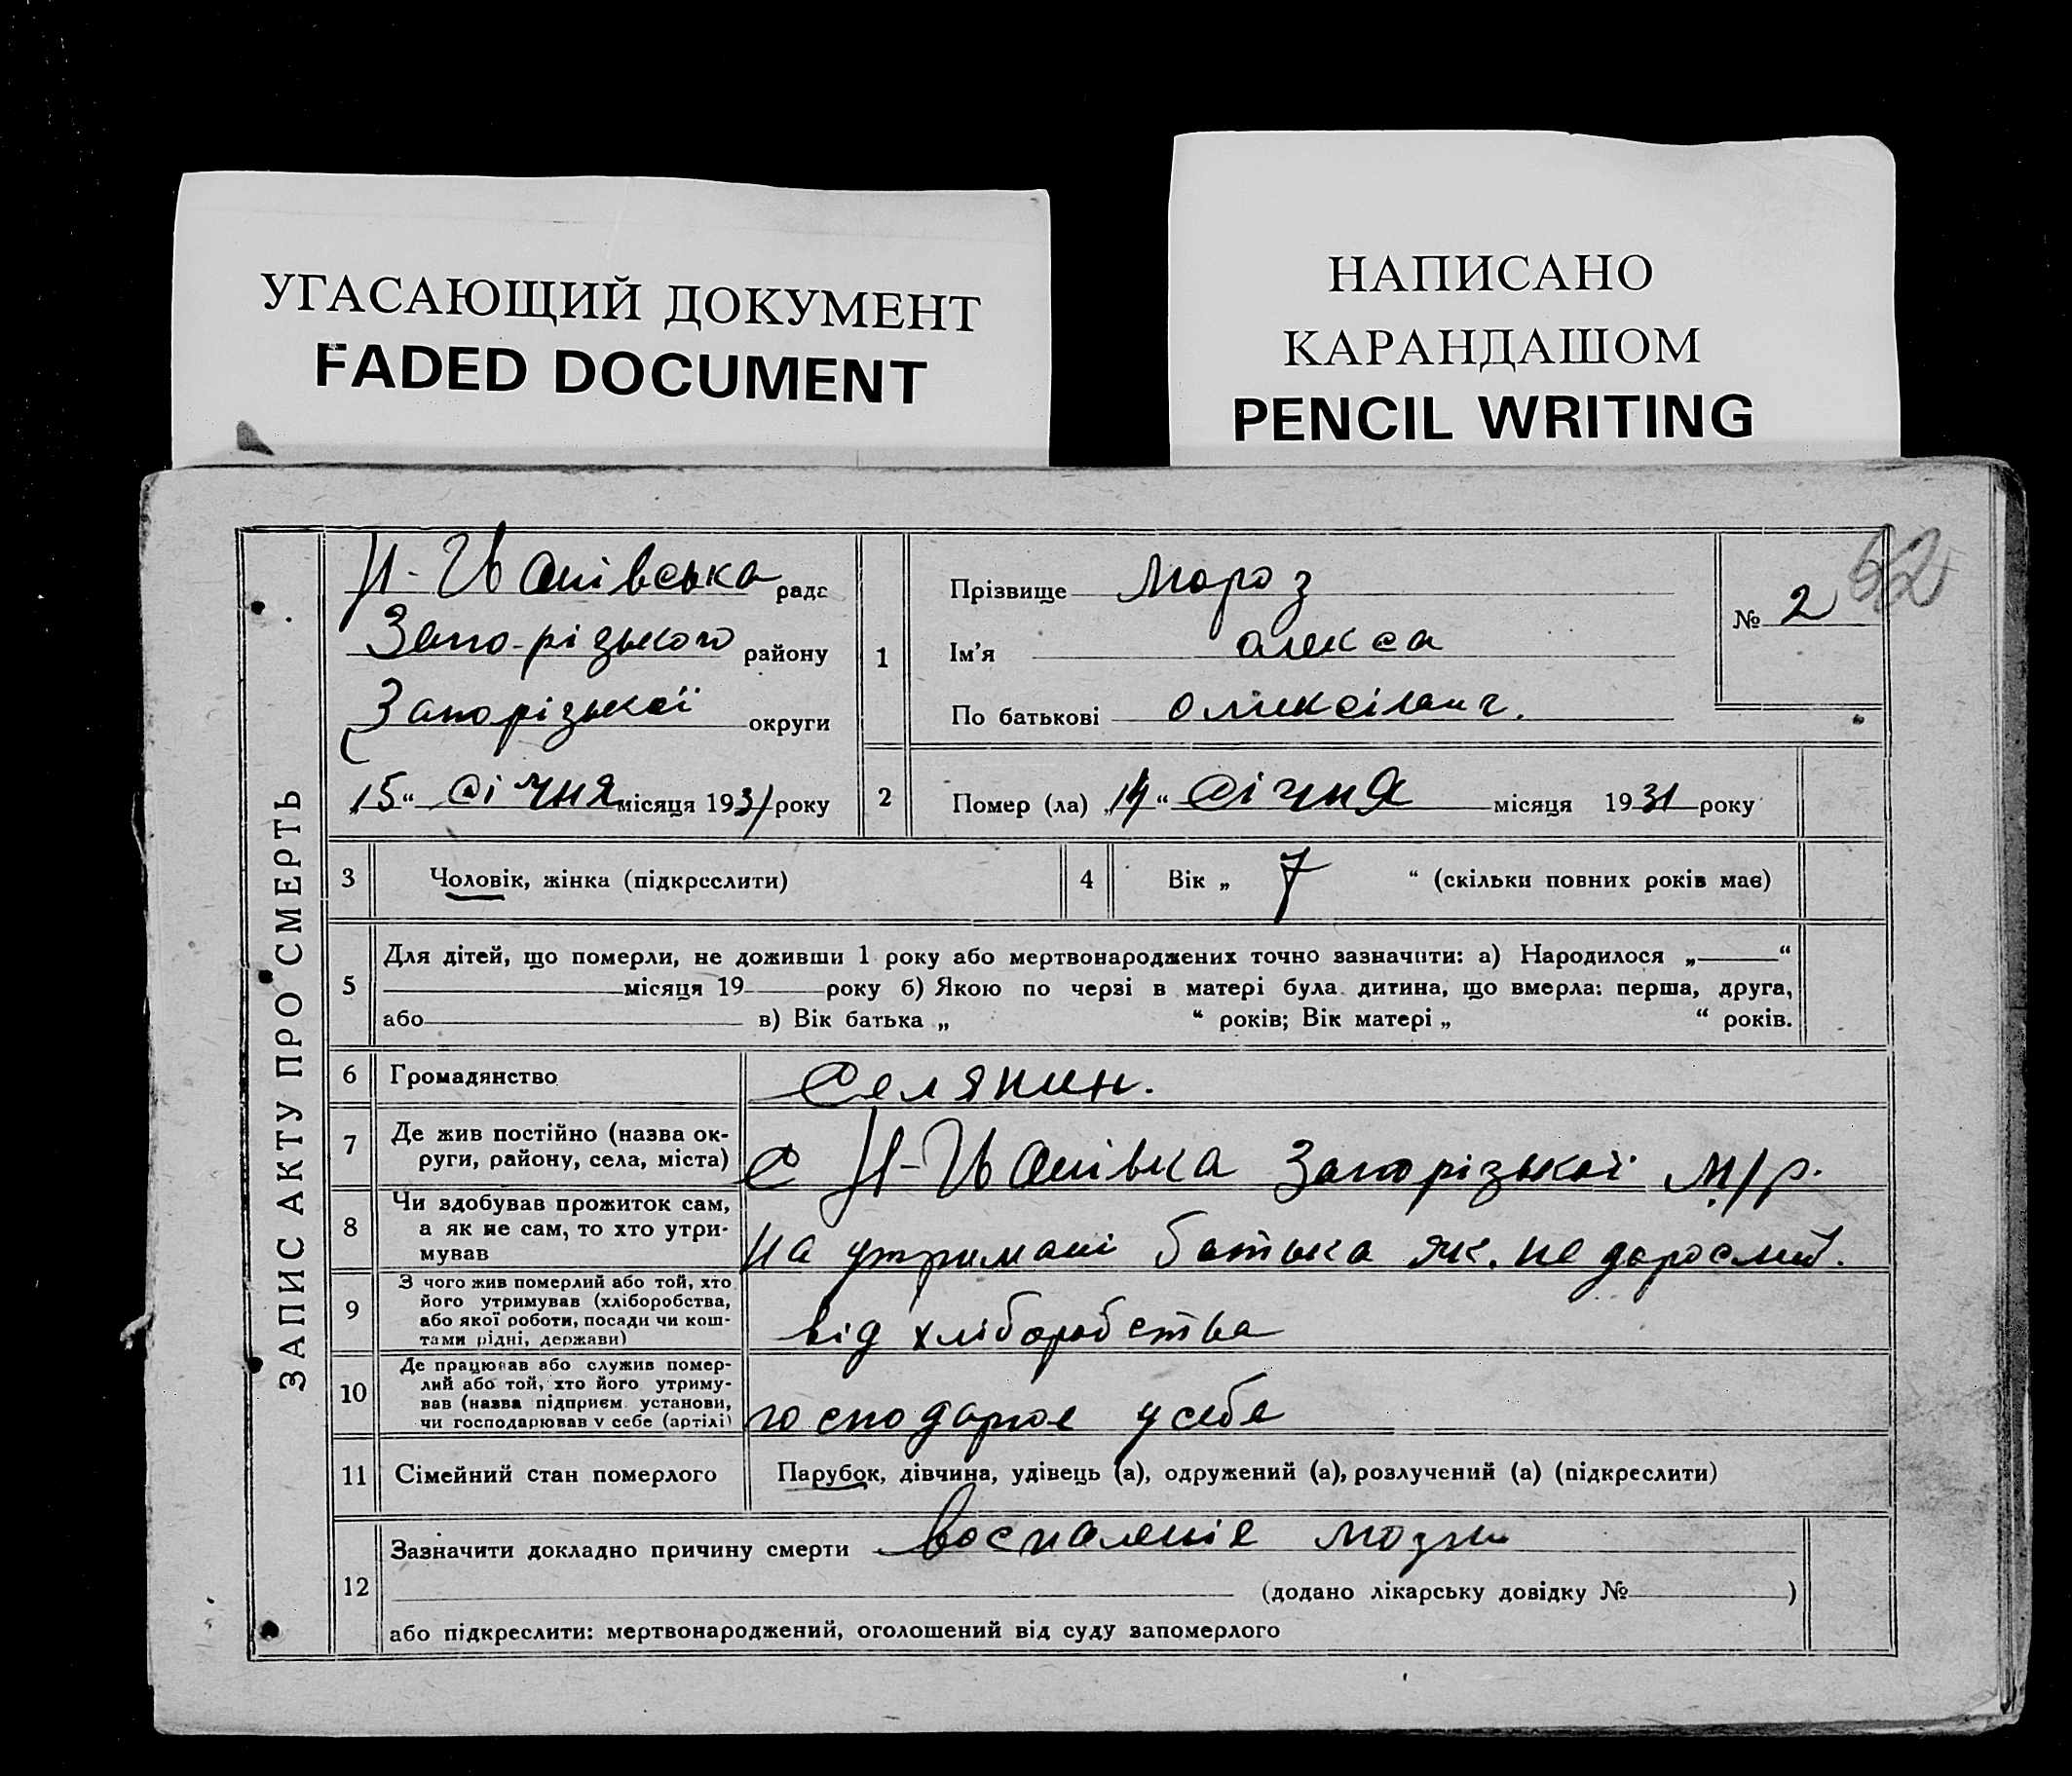 УГАСАЮЩИЙ ДОКУМЕНТ
FADED DOCUMENT
НАПИСАНО
КАРАНДАШОМ
PENCIL WRITING
62
ЗАПИС АКТУ ПРО СМЕРТЬ
Н-Иванівська рада
Запорізького району
Запорізької округи
„15“ січня місяця 1931 року
1
Прізвище Мороз
Ім’я Олекса
По батькові
№ 2
2 Помер (ла) „14“ січня місяця 1931 року
3 Чоловік, жінка (підкреслити)
4 Вік „ 7 “ (скільки повних років має)
5 Для дітей, що померли, не доживши 1 року або мертвонароджених точно зазначити: а) Народилося „ “
місяця 19 року б) Якою по черзі в матері була дитина, що вмерла: перша, друга,
або в) Вік батька „ “ років; Вік матері „ “ років.
6 Громадянство Селянин.
7 Де жив постійно (назва ок-
руги, району, села, міста) С Н-Иванівка Запорізької м/р.
8 Чи здобував прожиток сам,
а як не сам, то хто утри-
мував На утримані батька як. не дорослий.
9 З чого жив померлий або той, хто
його утримував (хліборобства,
або якої роботи, посади чи кош-
тами рідні, держави) від хліборобства
10 Де працював або служив помер-
лий або той, хто його утриму-
вав (назва підприєм. установи,
чи господарював у себе (артілі) господарює у себе
11 Сімейний стан померлого Парубок, дівчина, удівець (а), одружений (а), розлучений (а) (підкреслити)
12 Зазначити докладно причину смерти воспаленіе
(додано лікарську довідку № )
або підкреслити: мертвонароджений, оголошений від суду запомерлого